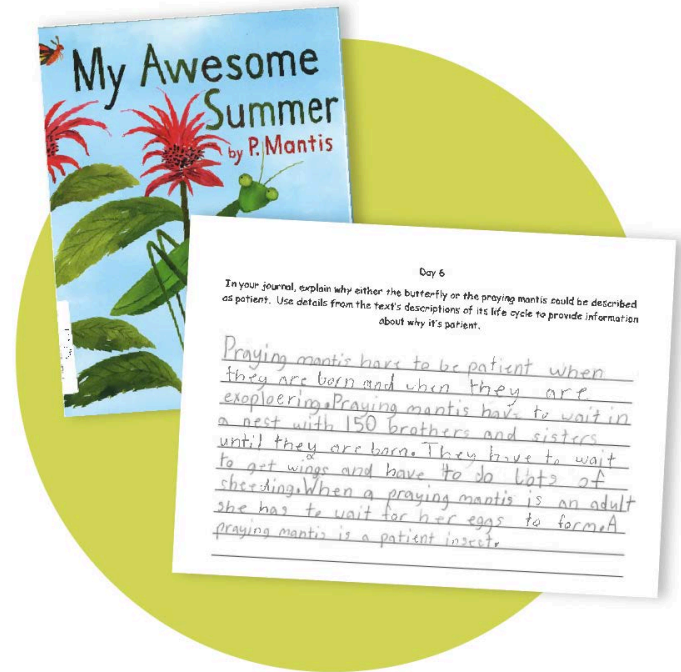 My Awesome
Summer
by P. Mantis
Day 6
In your journal, explain why either the butterfly or the praying mantis could be described
as patient. Use details from the text's descriptions of its life cycle to provide information
about why it's patient.
Praying mantis have to be patient when
they are born and when they are
exoploering. Praying mantis have to wait in
a nest with 150 brothers and sisters
until they are born. They have to wait
to get wings and have to do lots of
shedding. When a praying mantis is an adult
she has to wait for her eggs to form. A
praying mantis is a patient insect.